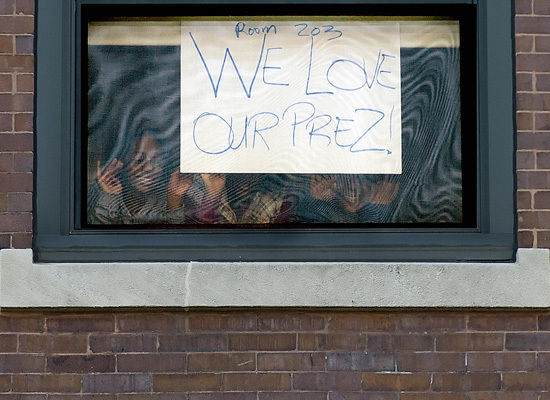 Room 203
WE LOVE
OUR PREZ!